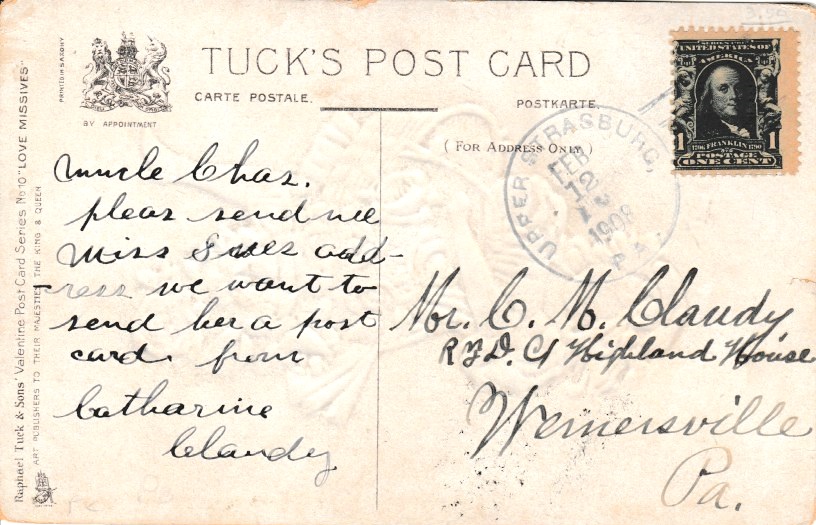 Raphael Tuck & Sons' Valentine Post Card Series No 10 "LOVE MISSIVES"
ART PUBLISHERS TO THEIR MAJESTIES THE KING & QUEEN
PRINTED IN SAXONY
BY APPOINTMENT
TUCK'S POST CARD
CARTE POSTALE.
POSTKARTE
(FOR ADDRESS ONLY)
SERIES 1902
UNITED STATES OF
AMERICA
1 1706 FRANKLIN 1790 1
POSTAGE
ONE CENT
UPPER STRASBURG,
FEB
12
1908
PA.
Uncle Chas.
pleas send me
Miss add-
ress we want to
send her a post
card. from
Catharine
Claudy
Mr. C. M. Claudy
R.F.D. C/ Highland House
Wernersville
Pa.